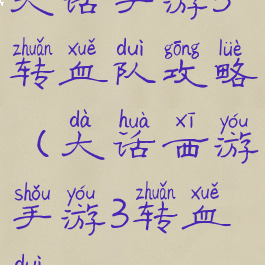 大话手游3
zhuǎn xuě duì gōng lüè
转血队攻略
dà huà xī yóu
(大话西游
shǒu yóu zhuǎn xuě
手游3转血
duì